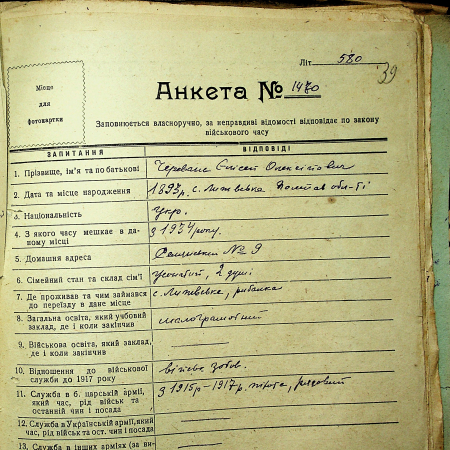 Літ 580
39
Місце
для
фотокартки
Анкета № 1470
Заповнюється власноручно, за неправдиві відомості відповідає по закону
військового часу
ЗАПИТАННЯ ВІДПОВІДІ
1. Прізвище, ім'я та по батькові Олексійович
2. Дата та місце народження 1893р. с.
3. Національність укр.
4. З якого часу мешкає в да-
ному місці з 1934 року.
5. Домашня адреса № 9
6. Сімейний стан та склад сім'ї жонатий, 2 душі
7. Де проживав та чим займався
до переїзду в дане місце с. рибалка
8. Загальна освіта, який учбовий
заклад, де і коли закінчив малограмотний
9. Військова освіта, який заклад,
де і коли закінчив
10. Відношення до військової
служби до 1917 року військ. зобов.
11. Служба в б. царській армії,
який час, рід військ та
останній чин і посада з 1915р–1917р. піхота, рядовий
12. Служба в Українській армії, який
час, рід військ та ост. чин і посада
13. Служба в інших арміях (за ви-